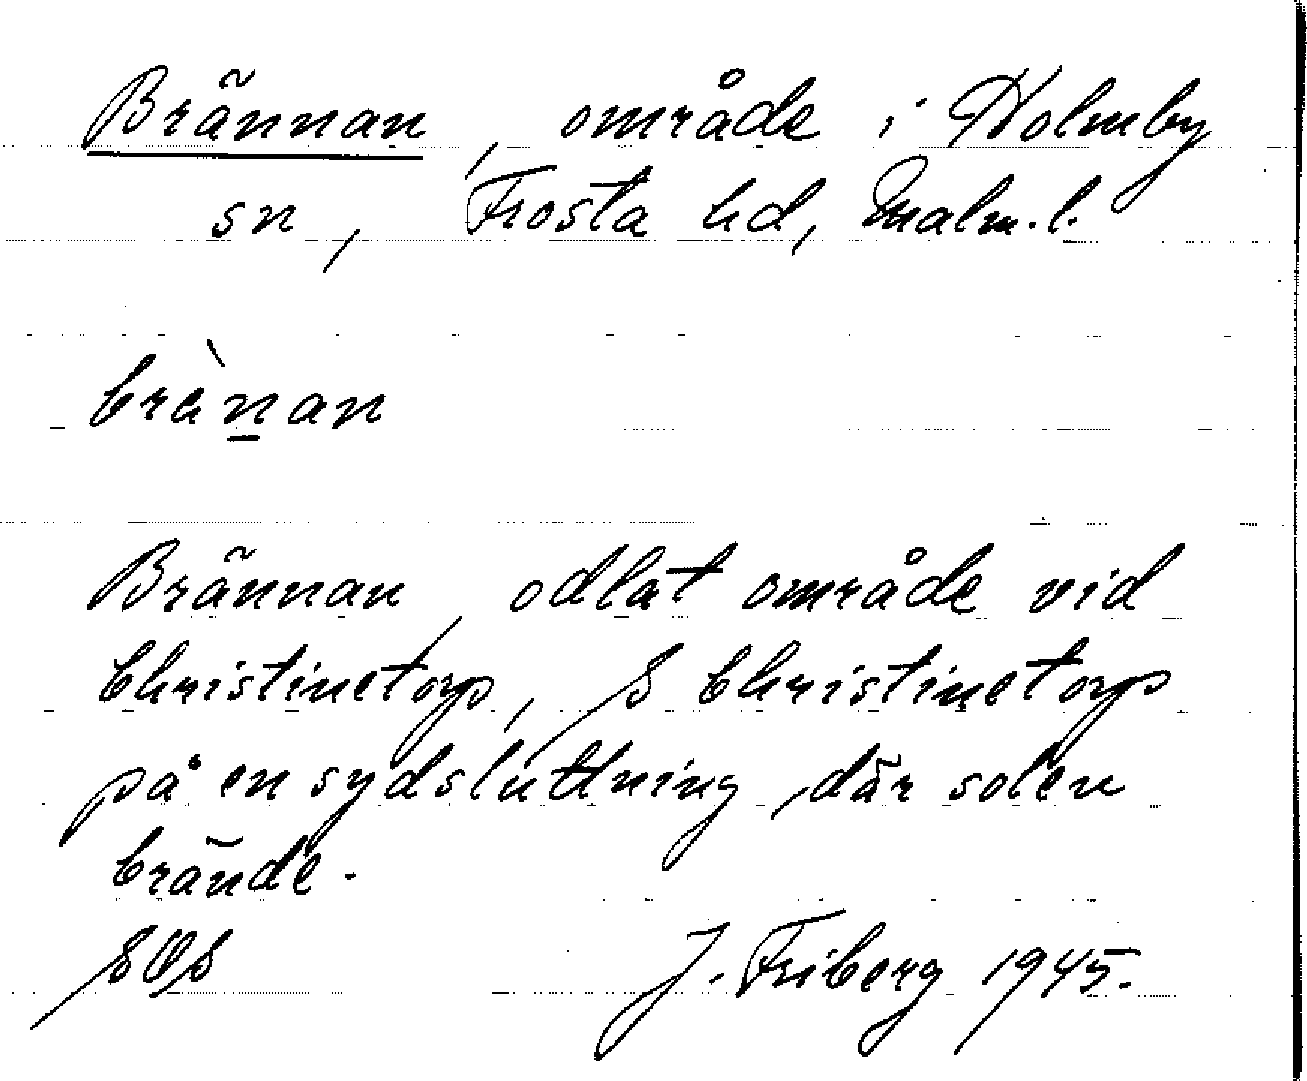 Brännan, område i Holmby
sn, Frosta hd, Malm. l.
brànan
Brännan, odlat område vid
Christinetorp, S Christinetorp
på en sydsluttning, där solen
brände.
SOS J. Friberg 1945.